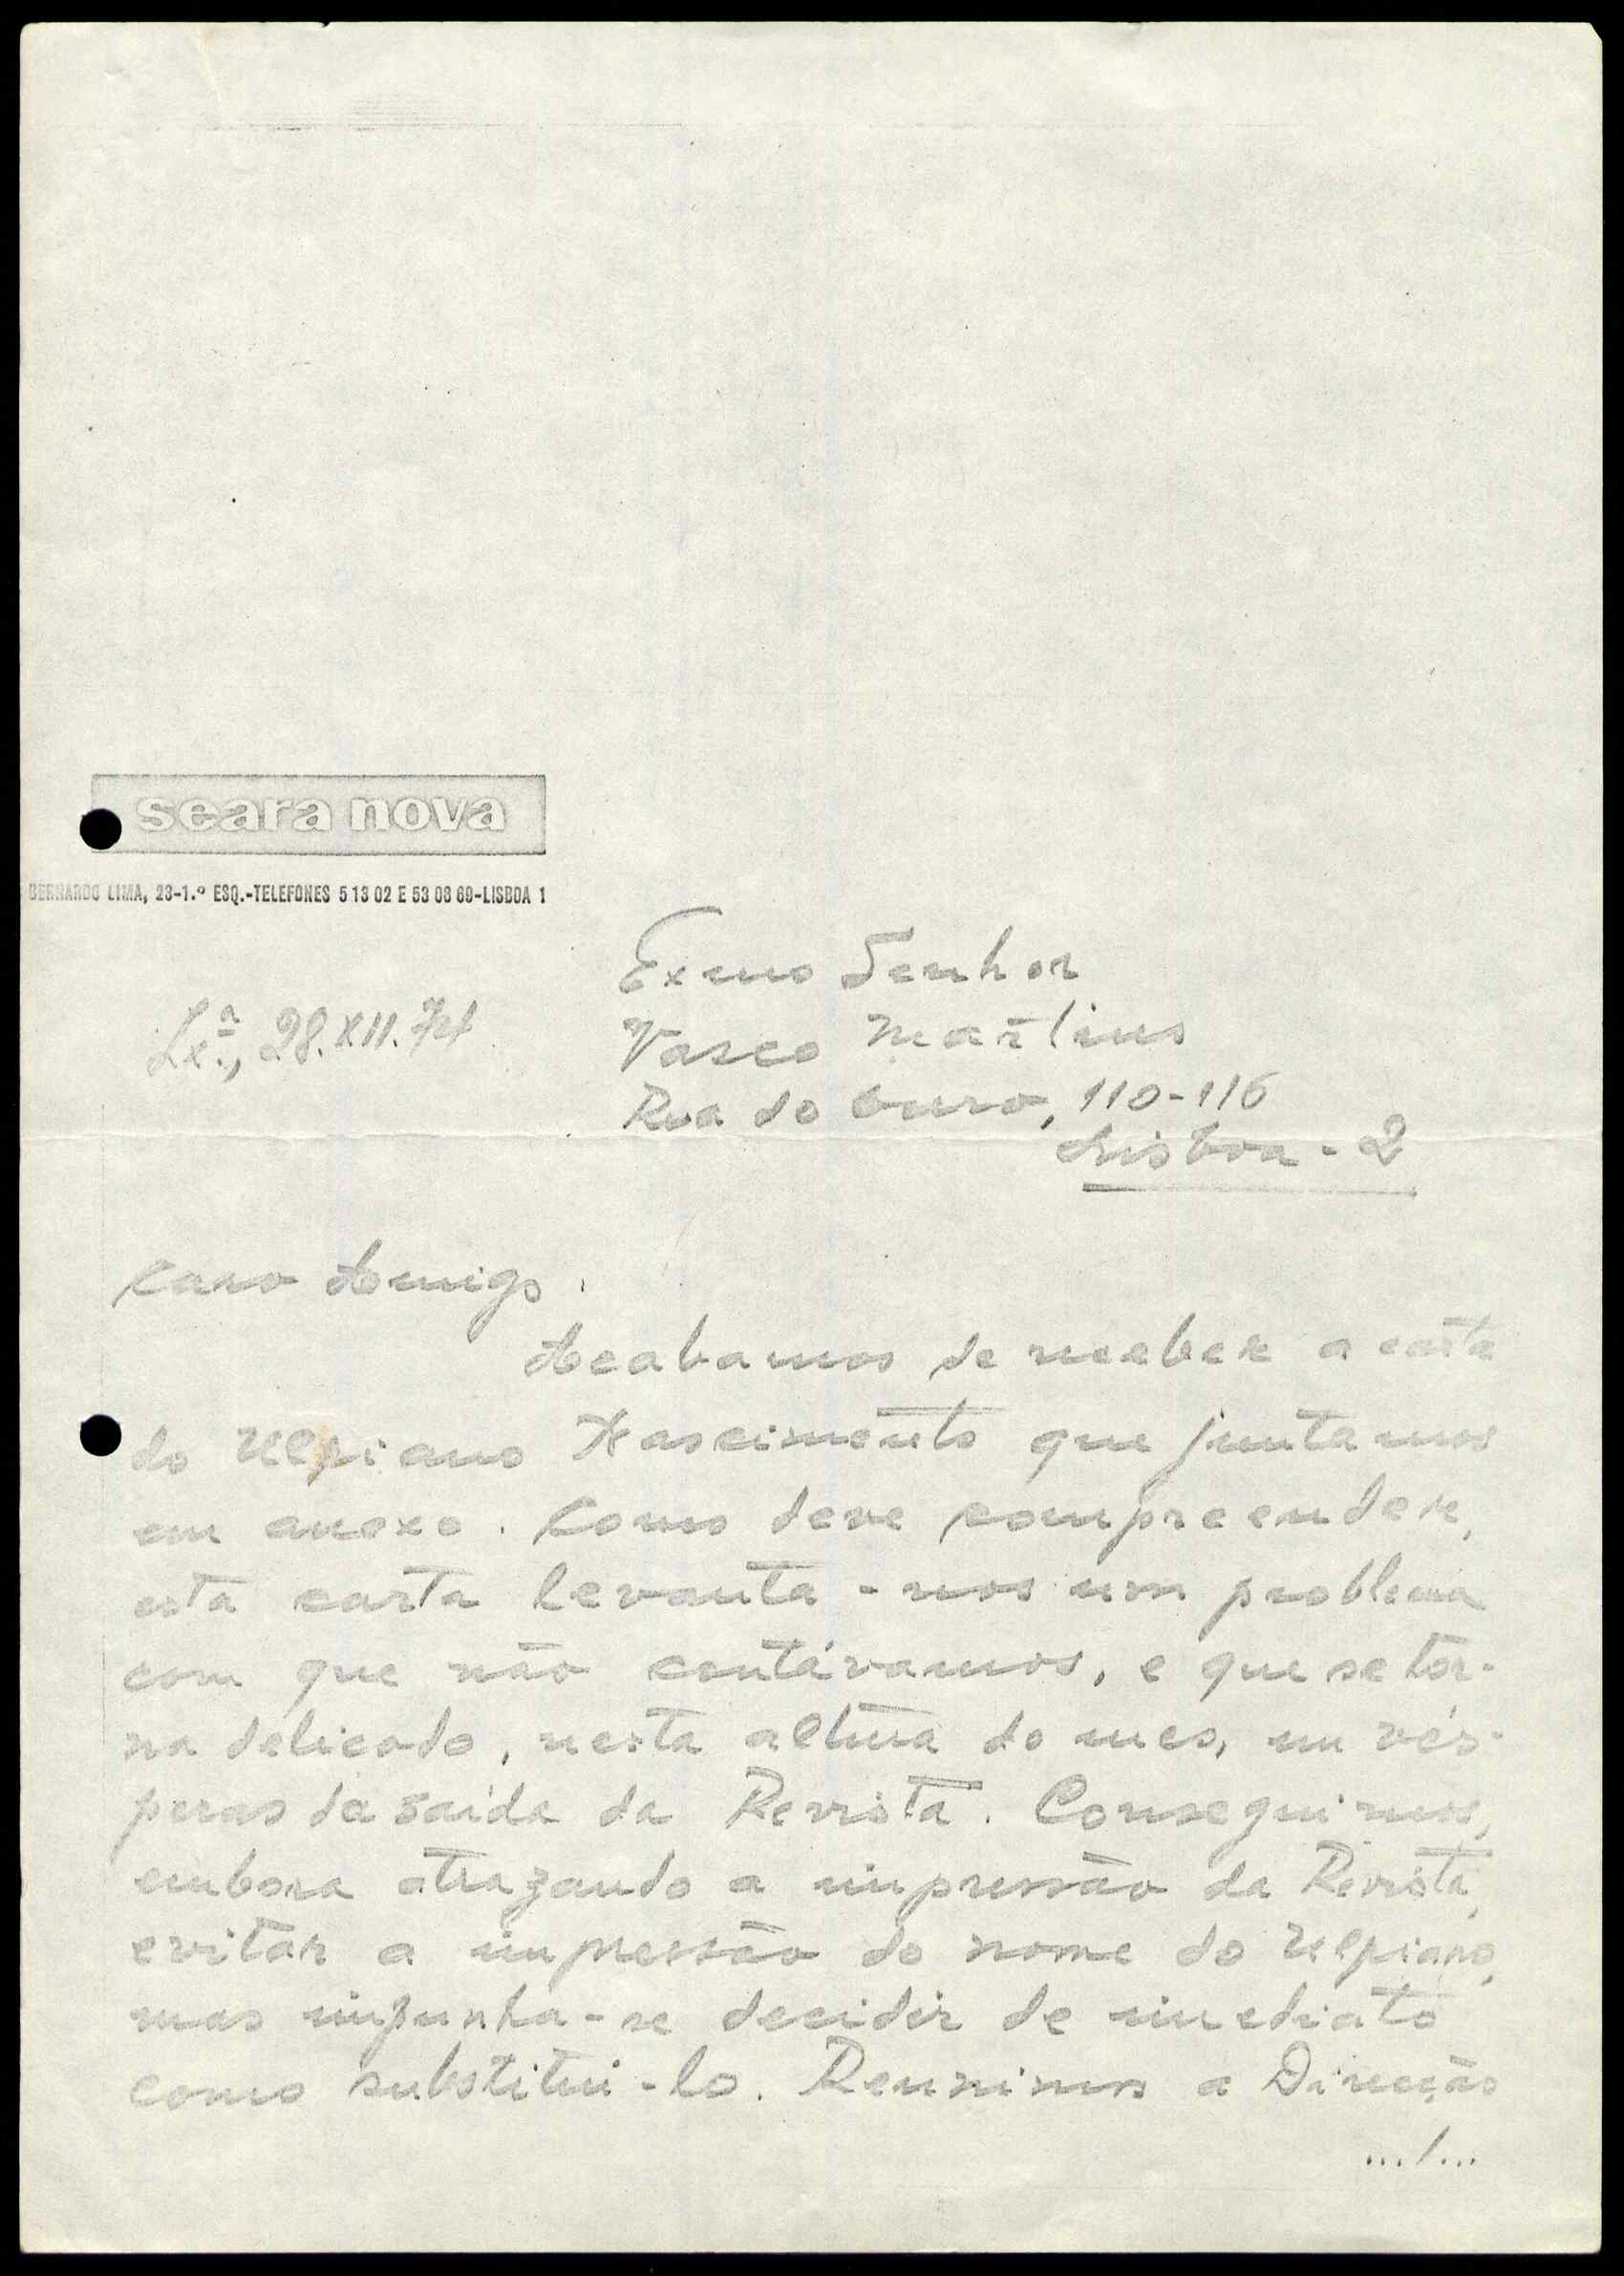 seara nova
BERNARDO LIMA, 23-1.º ESQ.-TELEFONES 5 13 02 E 53 08 69-LISBOA 1
Exmo Senhor
Lxª., 28.XII.74
Vasco Martins
Rua do Ouro, 110-116
Lisboa - 2
Caro Amigo.
Acabamos de receber a carta
do Ulpiano Nascimento que juntamos
em anexo. Como deve compreender,
esta carta levanta-nos um problema
com que não contávamos, e que se tor-
na delicado, nesta altura do mes, em vés-
peras da saída da Revista. Conseguimos,
embora atrazando a impressão da Revista,
evitar a impressão do nome do Ulpiano,
mas impunha-se decidir de imediato
como substitui-lo. Reunimos a Direcção
.../...